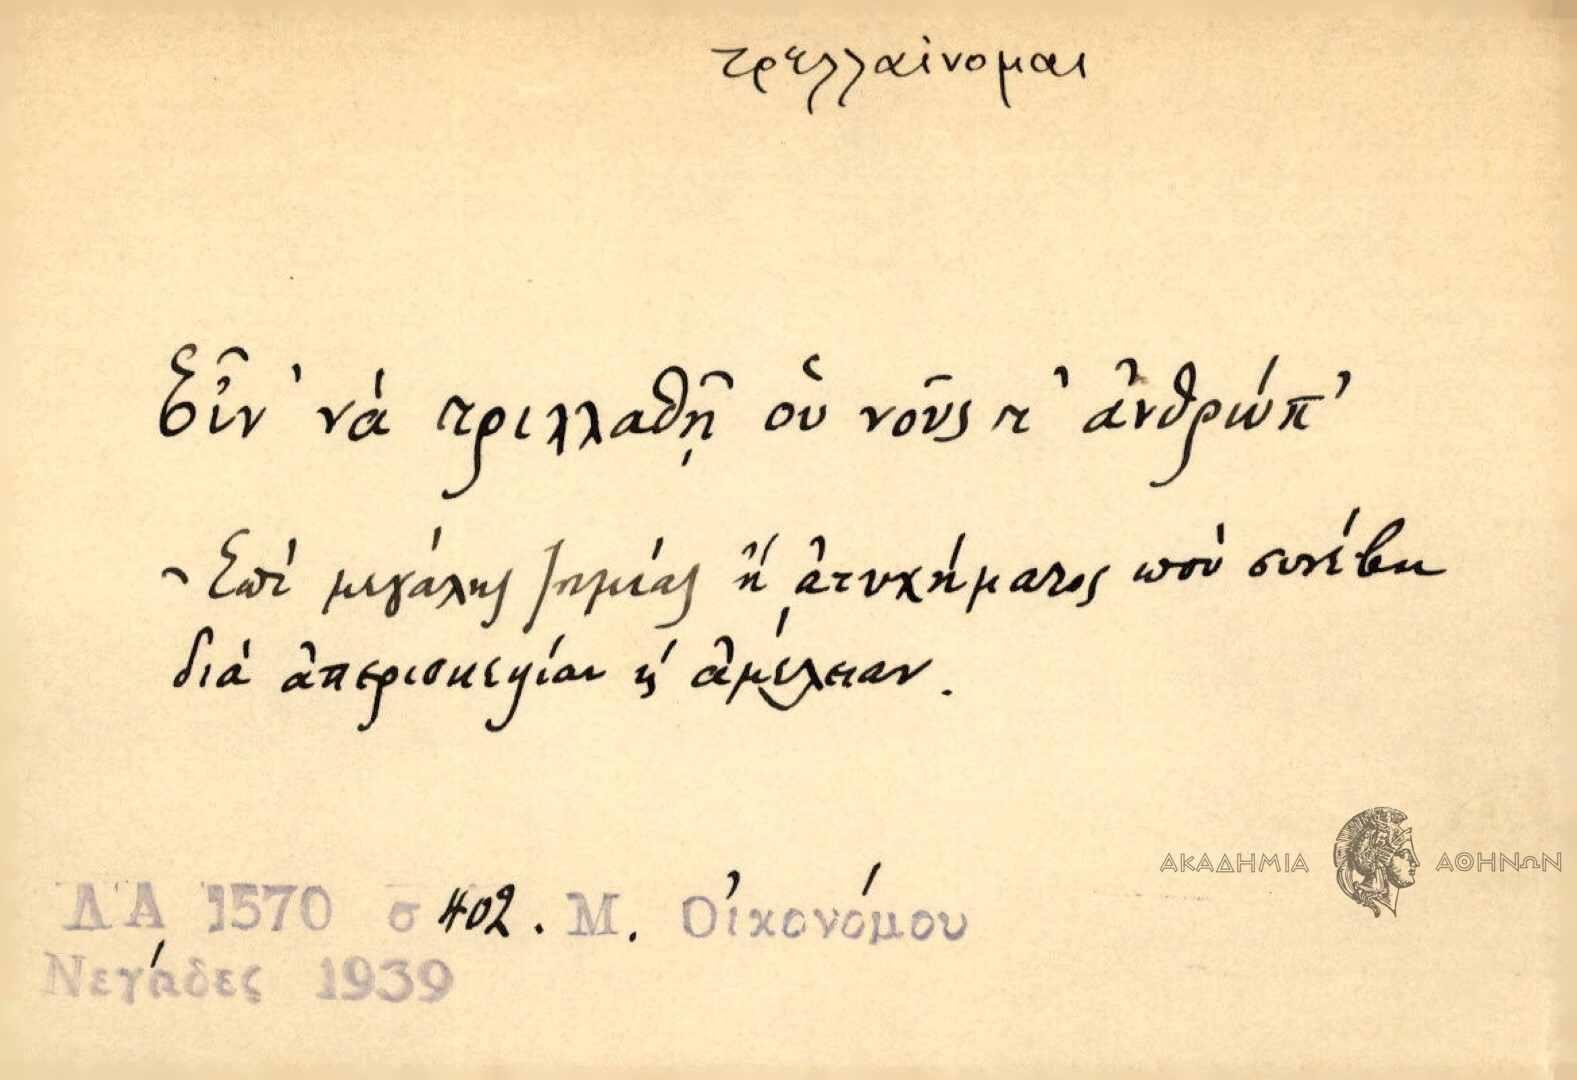 τρελλαίνομαι
Εἶν' νὰ τριλλαθῇ οὑ νοῦς τ' ἀνθρώπ'
- Ἐπὶ μεγάλης ζημίας ἢ ἀτυχήματος ποὺ συνέβη
διὰ ἀπερισκεψίαν ἢ ἀμέλειαν.
ΑΚΑΔΗΜΙΑ ΑΘΗΝΩΝ
ΛΑ 1570 σ 402. Μ. Οἰκονόμου
Νεγάδες 1939